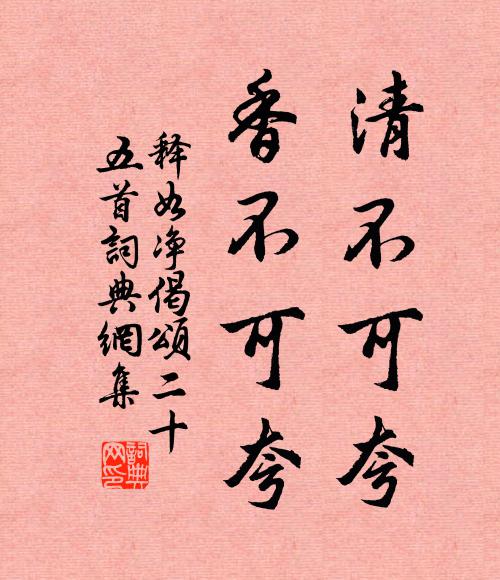 清不可夸
香不可夸
释如净偈颂二十
五首詞典網集
詞典
网印